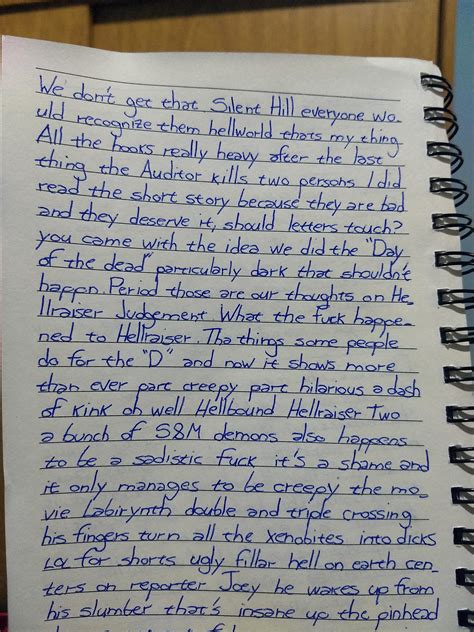 We don't get that Silent Hill everyone wo-
uld recognize them hellworld thats my thing
All the hooks really heavy after the last
thing the Auditor kills two persons I did
read the short story because they are bad
and they deserve it, should letters touch?
you came with the idea we did the "Day
of the dead" particularly dark that shouldn't
happen. Period those are our thoughts on He
llraiser Judgement What the Fuck happe-
ned to Hellraiser. Tha things some people
do for the "D" and now it shows more
than ever part creepy part hilarious a dash
of kink oh well Hellbound Hellraiser Two
a bunch of S&M demons also happens
to be a sadistic fuck it's a shame and
it only manages to be creepy the mo-
vie Labirynth double and triple crossing
his fingers turn all the xenobites into dicks
for shorts ugly fillar hell on earth cen-
ters on reporter Joey he wakes up from
his slumber that's insane up the pinhead